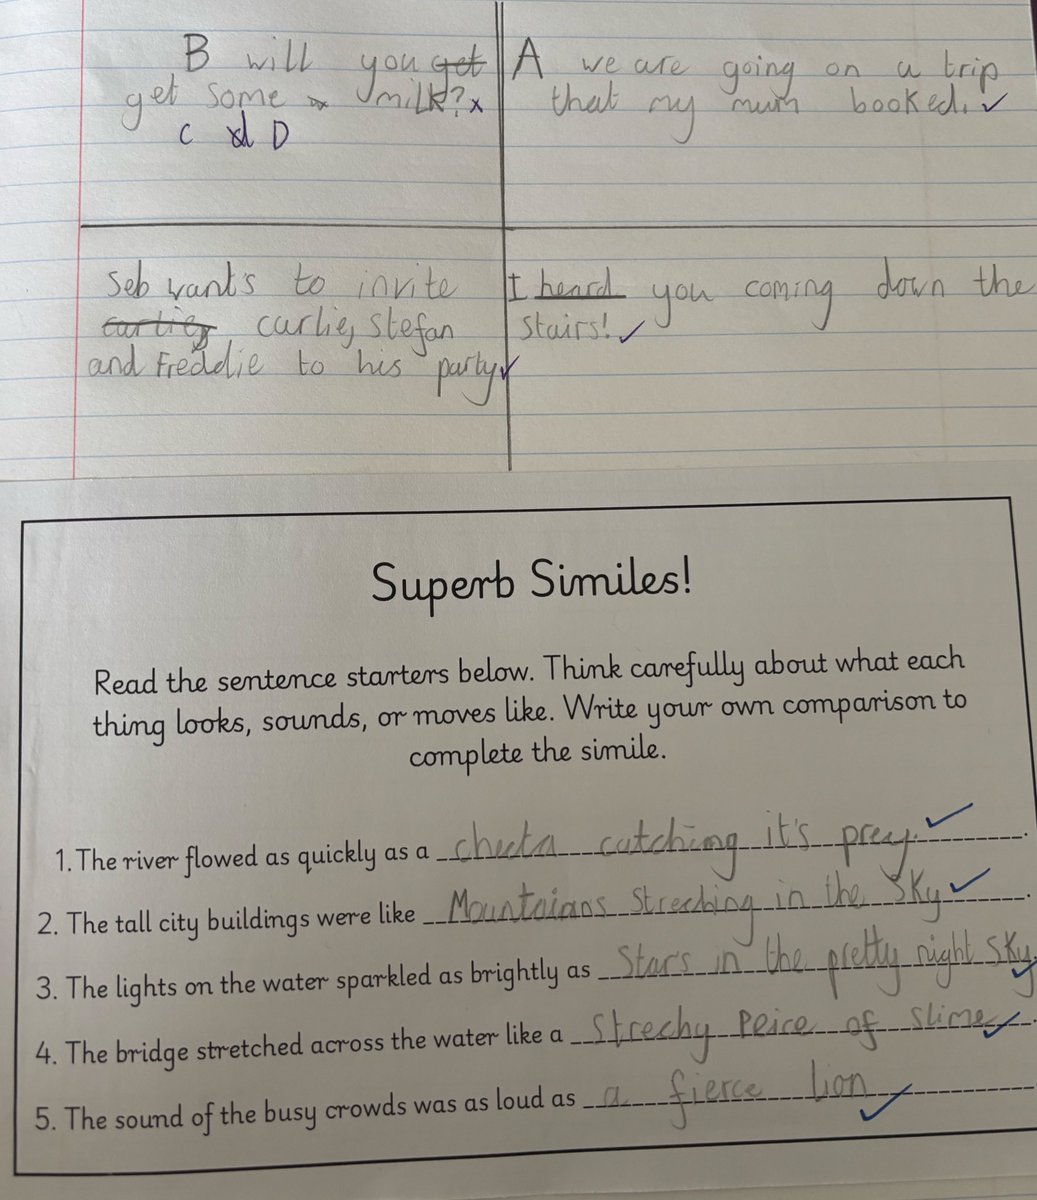 B will you get
get some milk? x
C d D
A we are going on a trip
that my mum booked. ✓
Seb wants to invite
carlie carlie, Stefan
and Freddie to his party ✓
I heard you coming down the
stairs! ✓
Superb Similes!
Read the sentence starters below. Think carefully about what each
thing looks, sounds, or moves like. Write your own comparison to
complete the simile.
1. The river flowed as quickly as a cheeta catching it's prey. ✓
2. The tall city buildings were like Mountaians streching in the sky ✓
3. The lights on the water sparkled as brightly as Stars in the pretty night sky ✓
4. The bridge stretched across the water like a Strechy peice of slime ✓
5. The sound of the busy crowds was as loud as a fierce lion ✓